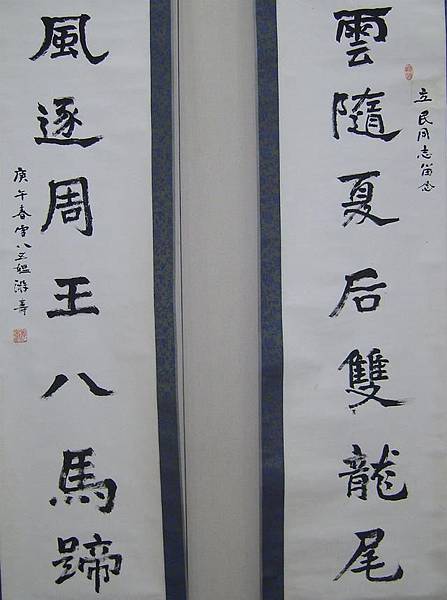 雲隨夏后雙龍尾
立民同志留念
風逐周王八馬蹄
庚午春雪八五媼游壽